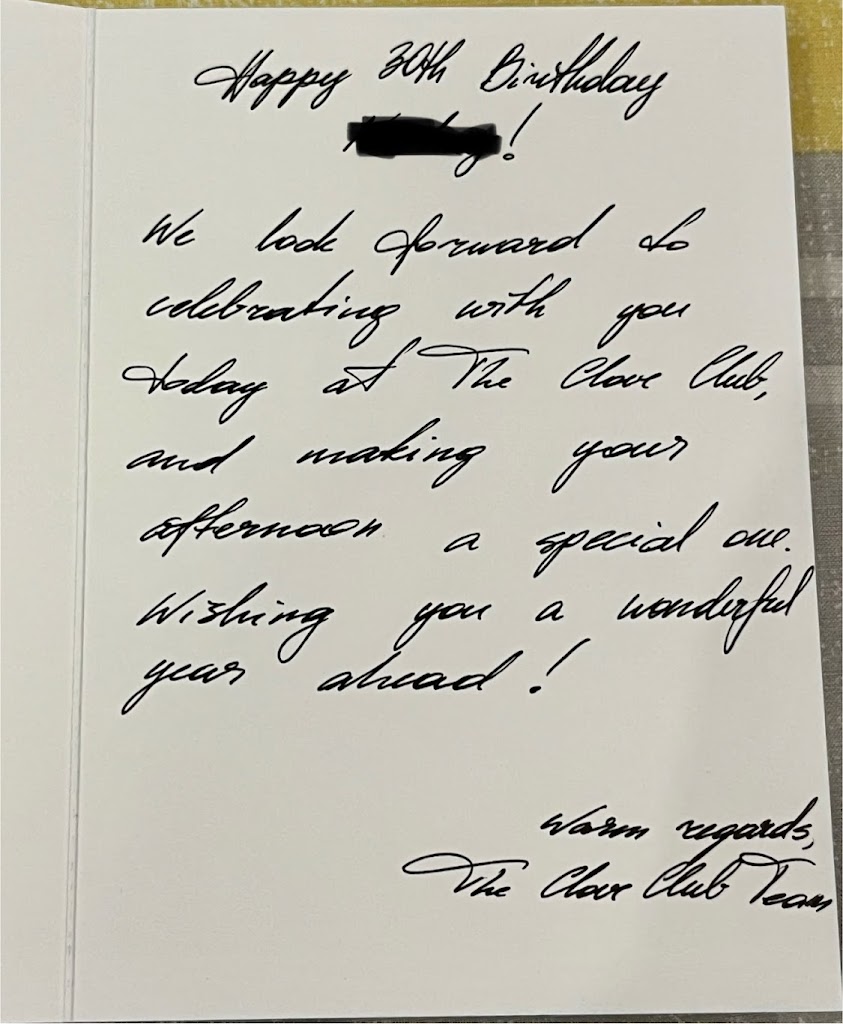 Happy 30th Birthday
!
We look forward to
celebrating with you
today at The Clove Club,
and making your
afternoon a special one.
Wishing you a wonderful
year ahead!
Warm regards,
The Clove Club Team